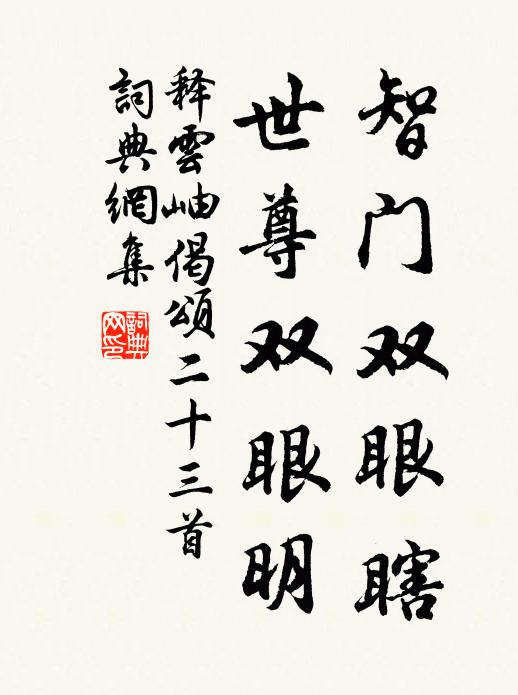 智门双眼瞎
世尊双眼明
释雲岫偈頌二十三首
詞典網集
詞典网印